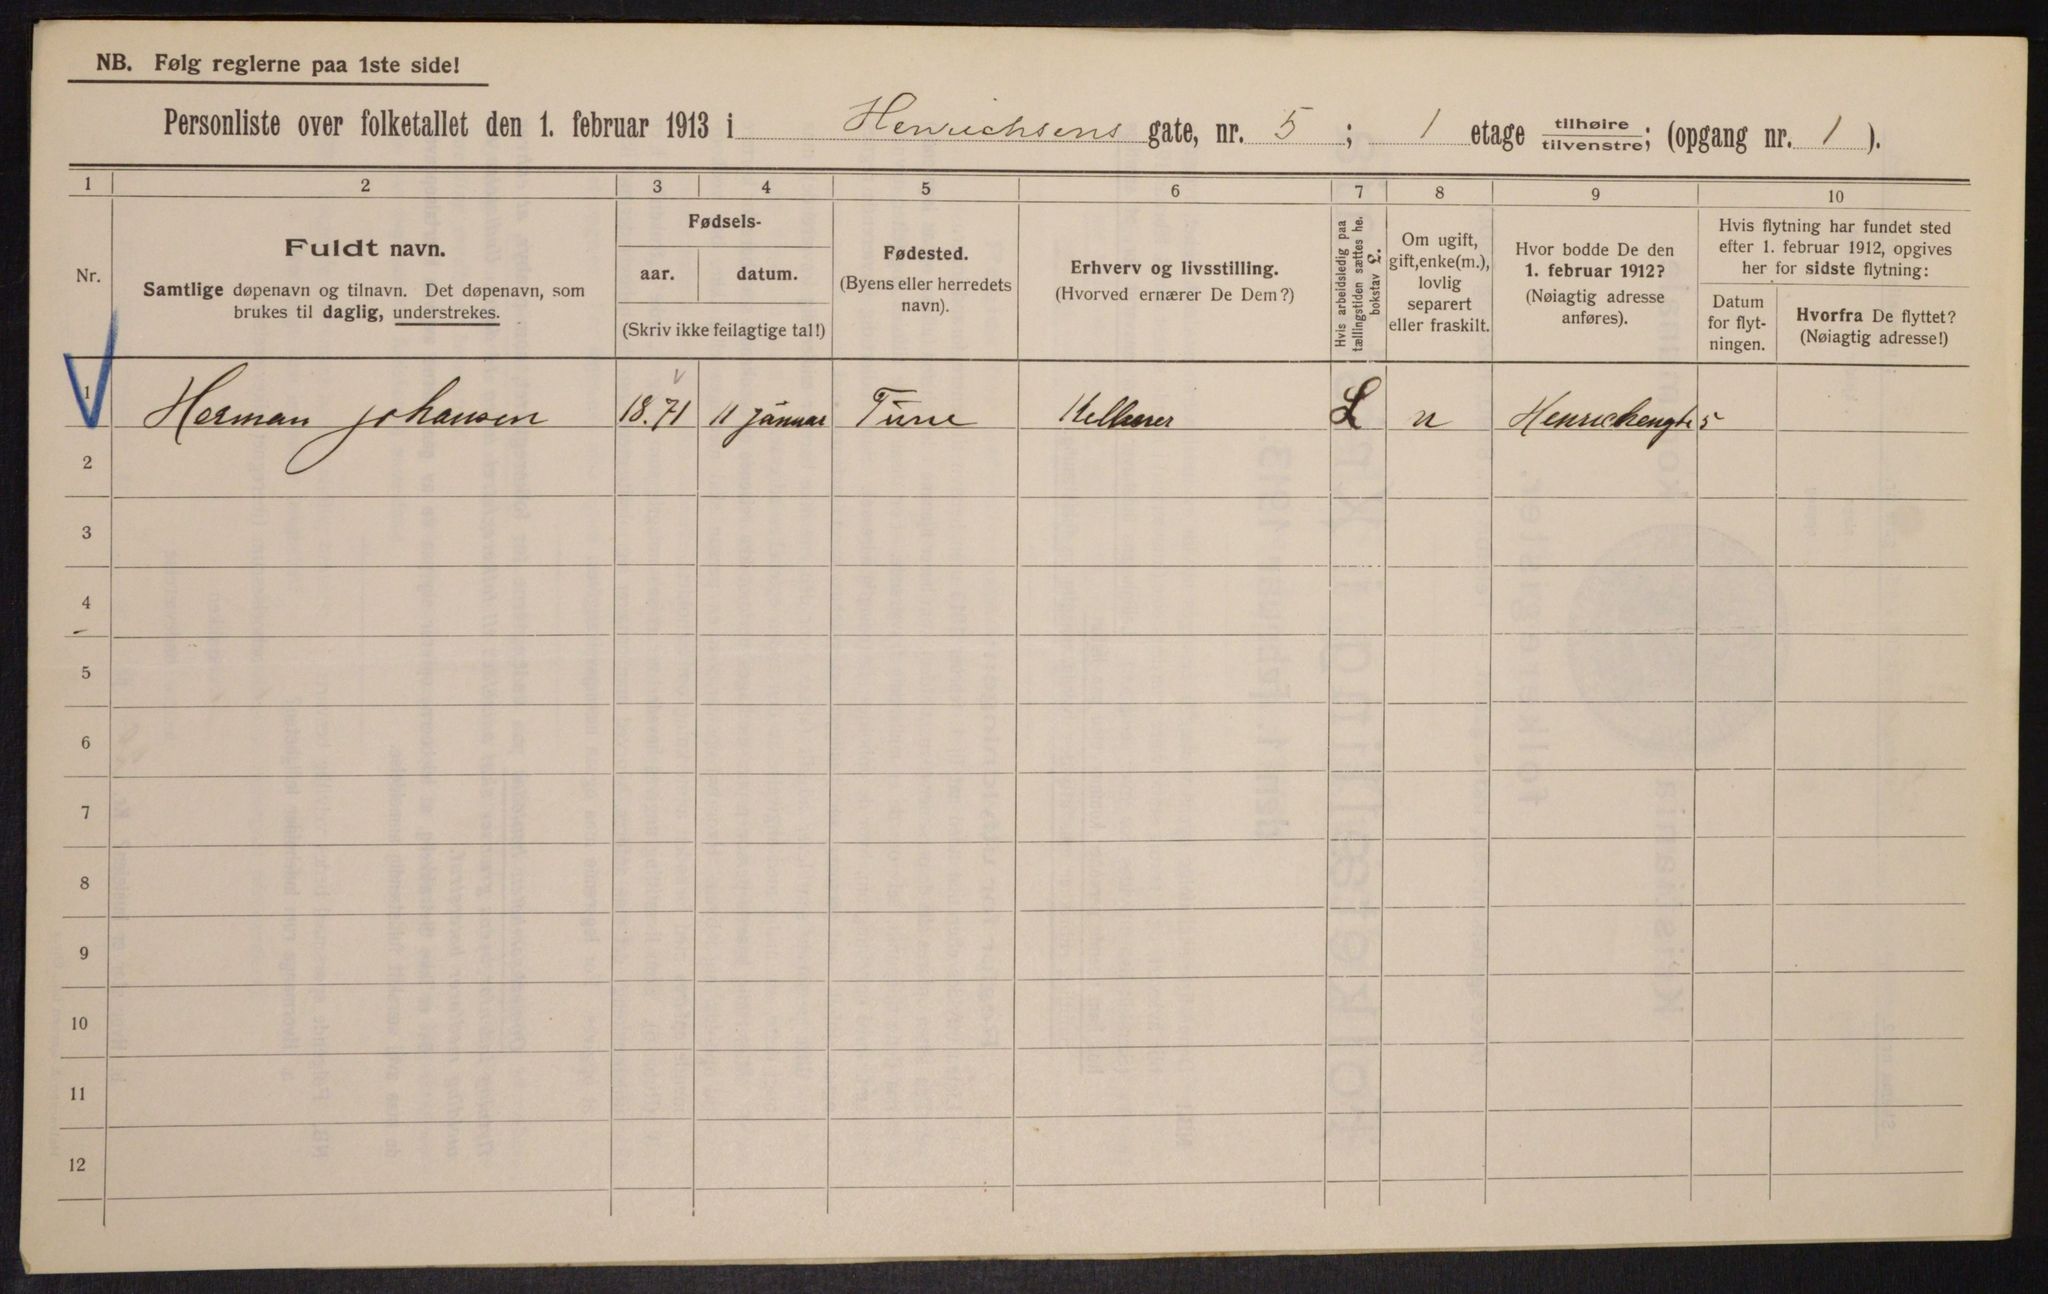 NB. Følg reglerne paa 1ste side!
Personliste over folketallet den 1. februar 1913 i Henrichsens gate, nr. 5 ; 1 etage tilhøire/tilvenstre; (opgang nr. 1 ).
1 2 3 4 5 6 7 8 9 10
Nr.
Fuldt navn.
Samtlige døpenavn og tilnavn. Det døpenavn, som
brukes til daglig, understrekes.
Fødsels-
aar. datum.
(Skriv ikke feilagtige tal!)
Fødested.
(Byens eller herredets
navn).
Erhverv og livsstilling.
(Hvorved ernærer De Dem?)
Hvis arbeidsledig paa
tællingstiden sættes he.
bokstav L.
Om ugift,
gift, enke(m.),
lovlig
separert
eller fraskilt.
Hvor bodde De den
1. februar 1912?
(Nøiagtig adresse
anføres).
Hvis flytning har fundet sted
efter 1. februar 1912, opgives
her for sidste flytning:
Datum
for flyt-
ningen.
Hvorfra De flyttet?
(Nøiagtig adresse!)
1 Herman Johansen 18.71 11 januar Tune Kellner L u Henrichengt 5
2
3
4
5
6
7
8
9
10
11
12